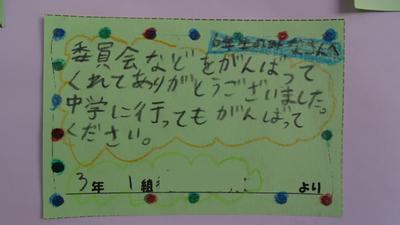 6年生のみなさんへ
委員会などをがんばって
くれてありがとうございました。
中学に行ってもがんばって
ください。
3年 1組 より